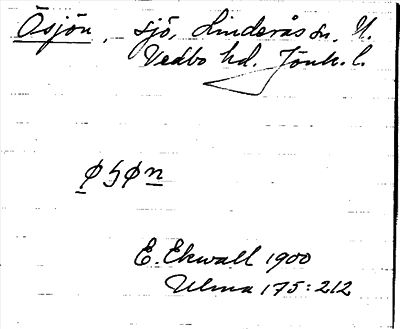 Ösjön, sjö, Linderås sn, N.
Vedbo hd. Jönk. l.
ø ʃ ø n
E. Ekwall 1900
Ulma 175:212